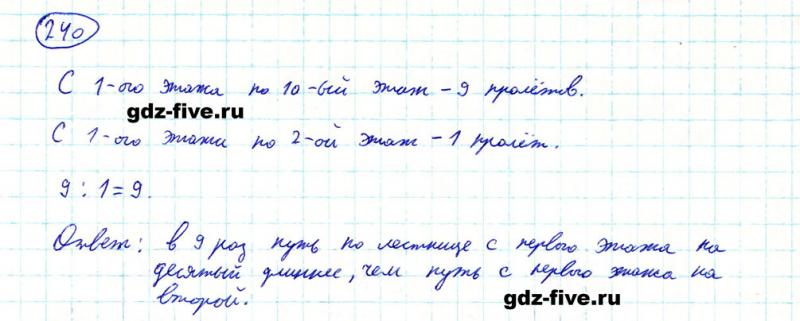 240
С 1-ого этажа по 10-ый этаж - 9 пролётов.
gdz-five.ru
С 1-ого этажа по 2-ой этаж - 1 пролёт.
9 : 1 = 9.
Ответ: в 9 раз путь по лестнице с первого этажа на
десятый длиннее, чем путь с первого этажа на
второй.
gdz-five.ru